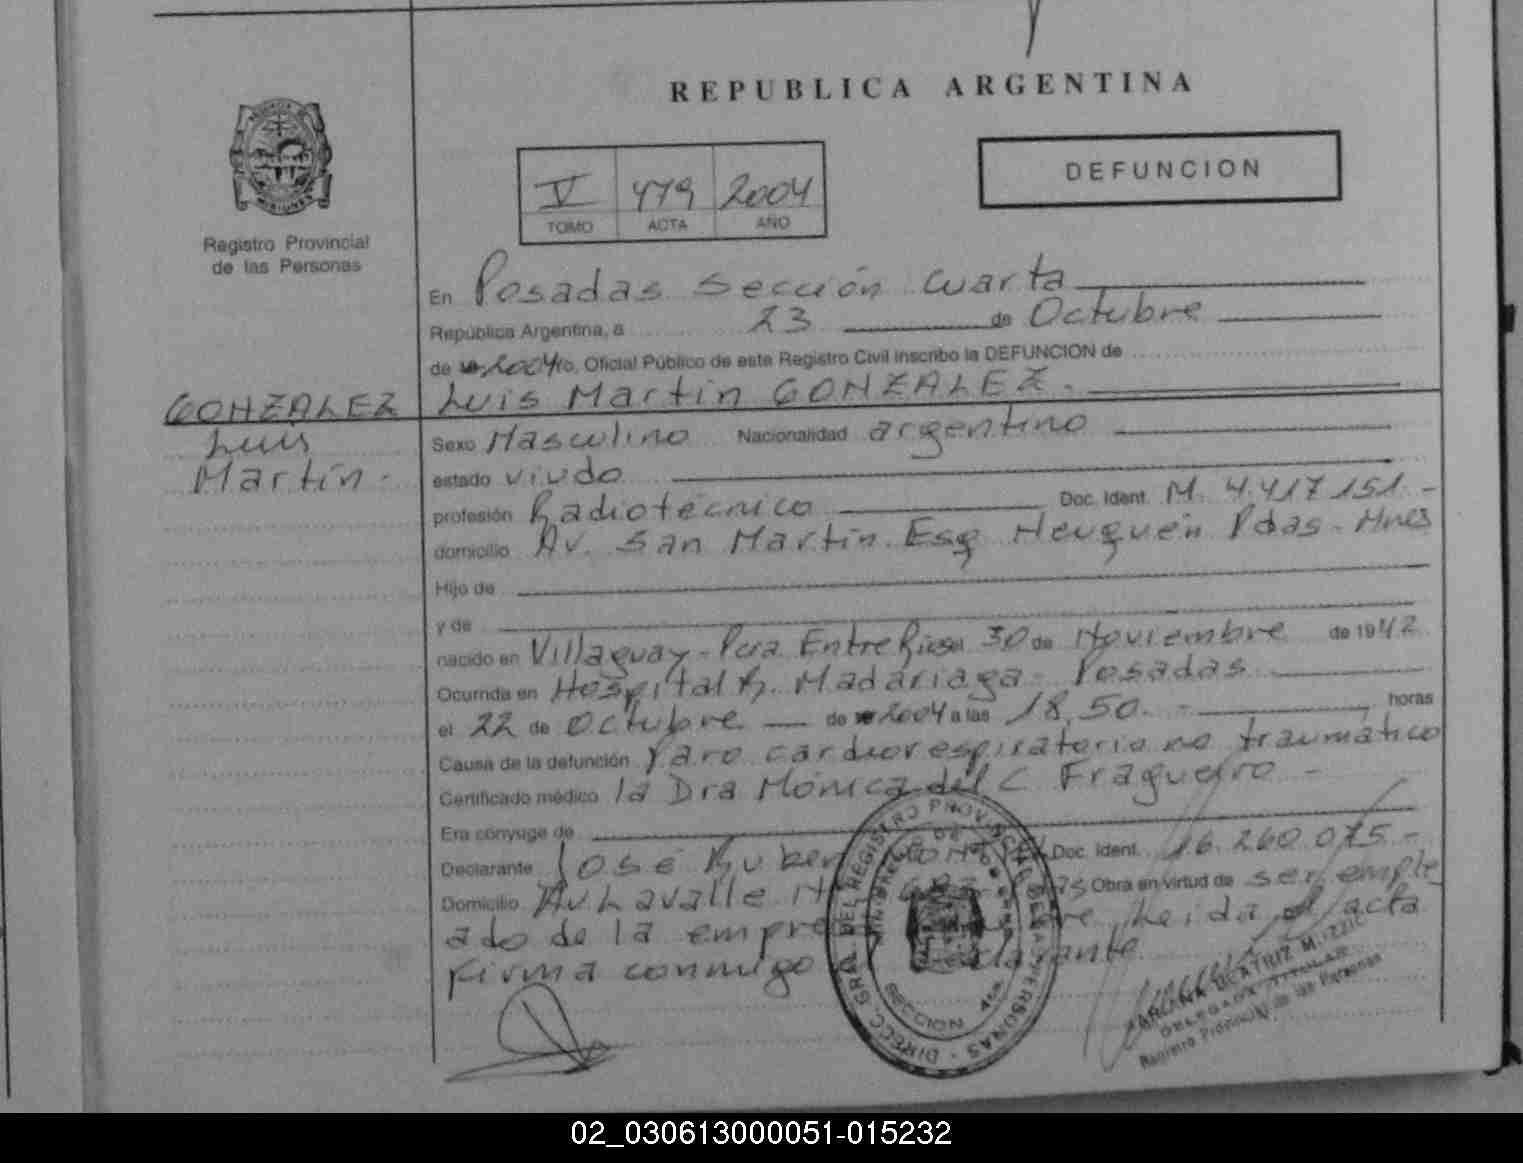 REPUBLICA ARGENTINA
PROVINCIA DE MISIONES
Registro Provincial
de las Personas
V 479 2004
TOMO ACTA AÑO
DEFUNCION
En Posadas Sección Cuarta
República Argentina, a 23 de Octubre
de 2004 yo, Oficial Público de este Registro Civil inscribo la DEFUNCION de
GONZALEZ
Luis
Martín -
Luis Martín GONZALEZ.
Sexo Masculino Nacionalidad argentino
estado viudo
profesión Radiotécnico Doc. Ident. M. 4.417.151.-
domicilio Av. San Martín Esq Neuquén Pdas - Mnes
Hijo de
y de
nacido en Villaguay - Pcia Entre Rios el 30 de Noviembre de 1942
Ocurrida en Hospital R. Madariaga - Posadas
el 22 de Octubre de 2004 a las 18,50.- horas
Causa de la defunción Paro cardiorespiratorio no traumático
Certificado médico la Dra Mónica del C Fragueiro -
Era cónyuge de
Declarante José Ruben Doc. Ident. 16.260.075.-
Domicilio Av. Lavalle Obra en virtud de ser emple
ado de la Leída el acta
firma conmigo
DIREC. GRAL. DEL REGISTRO PROVINCIAL DE LAS PERSONAS
SECCION 4ta
BEATRIZ
DELEGADA TITULAR
Registro Provincial de las Personas
02_030613000051-015232